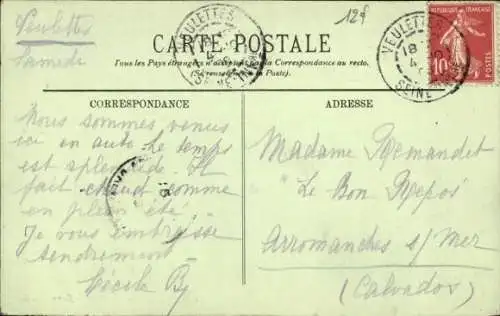 Veulettes
Samedi
12f
CARTE POSTALE
Tous les Pays étrangers n'acceptent pas la Correspondance au recto.
(Se renseigner à la Poste).
CORRESPONDANCE
ADRESSE
Nous sommes venus
ici en auto. Le temps
est splendide. Il
fait chaud comme
en plein été.
Je vous embrasse
tendrement
Cécile
Madame Remandet
Le Bon Repos
Arromanches s/ Mer
(Calvados)
VEULETTES
VEULETTES
18
4
SEINE
REPUBLIQUE FRANÇAISE
10
POSTES